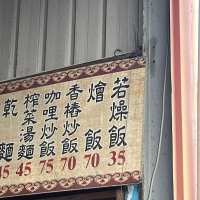 若燥飯 35
燴飯 70
香椿炒飯 70
咖哩炒飯 75
榨菜湯麵 45
乾麵